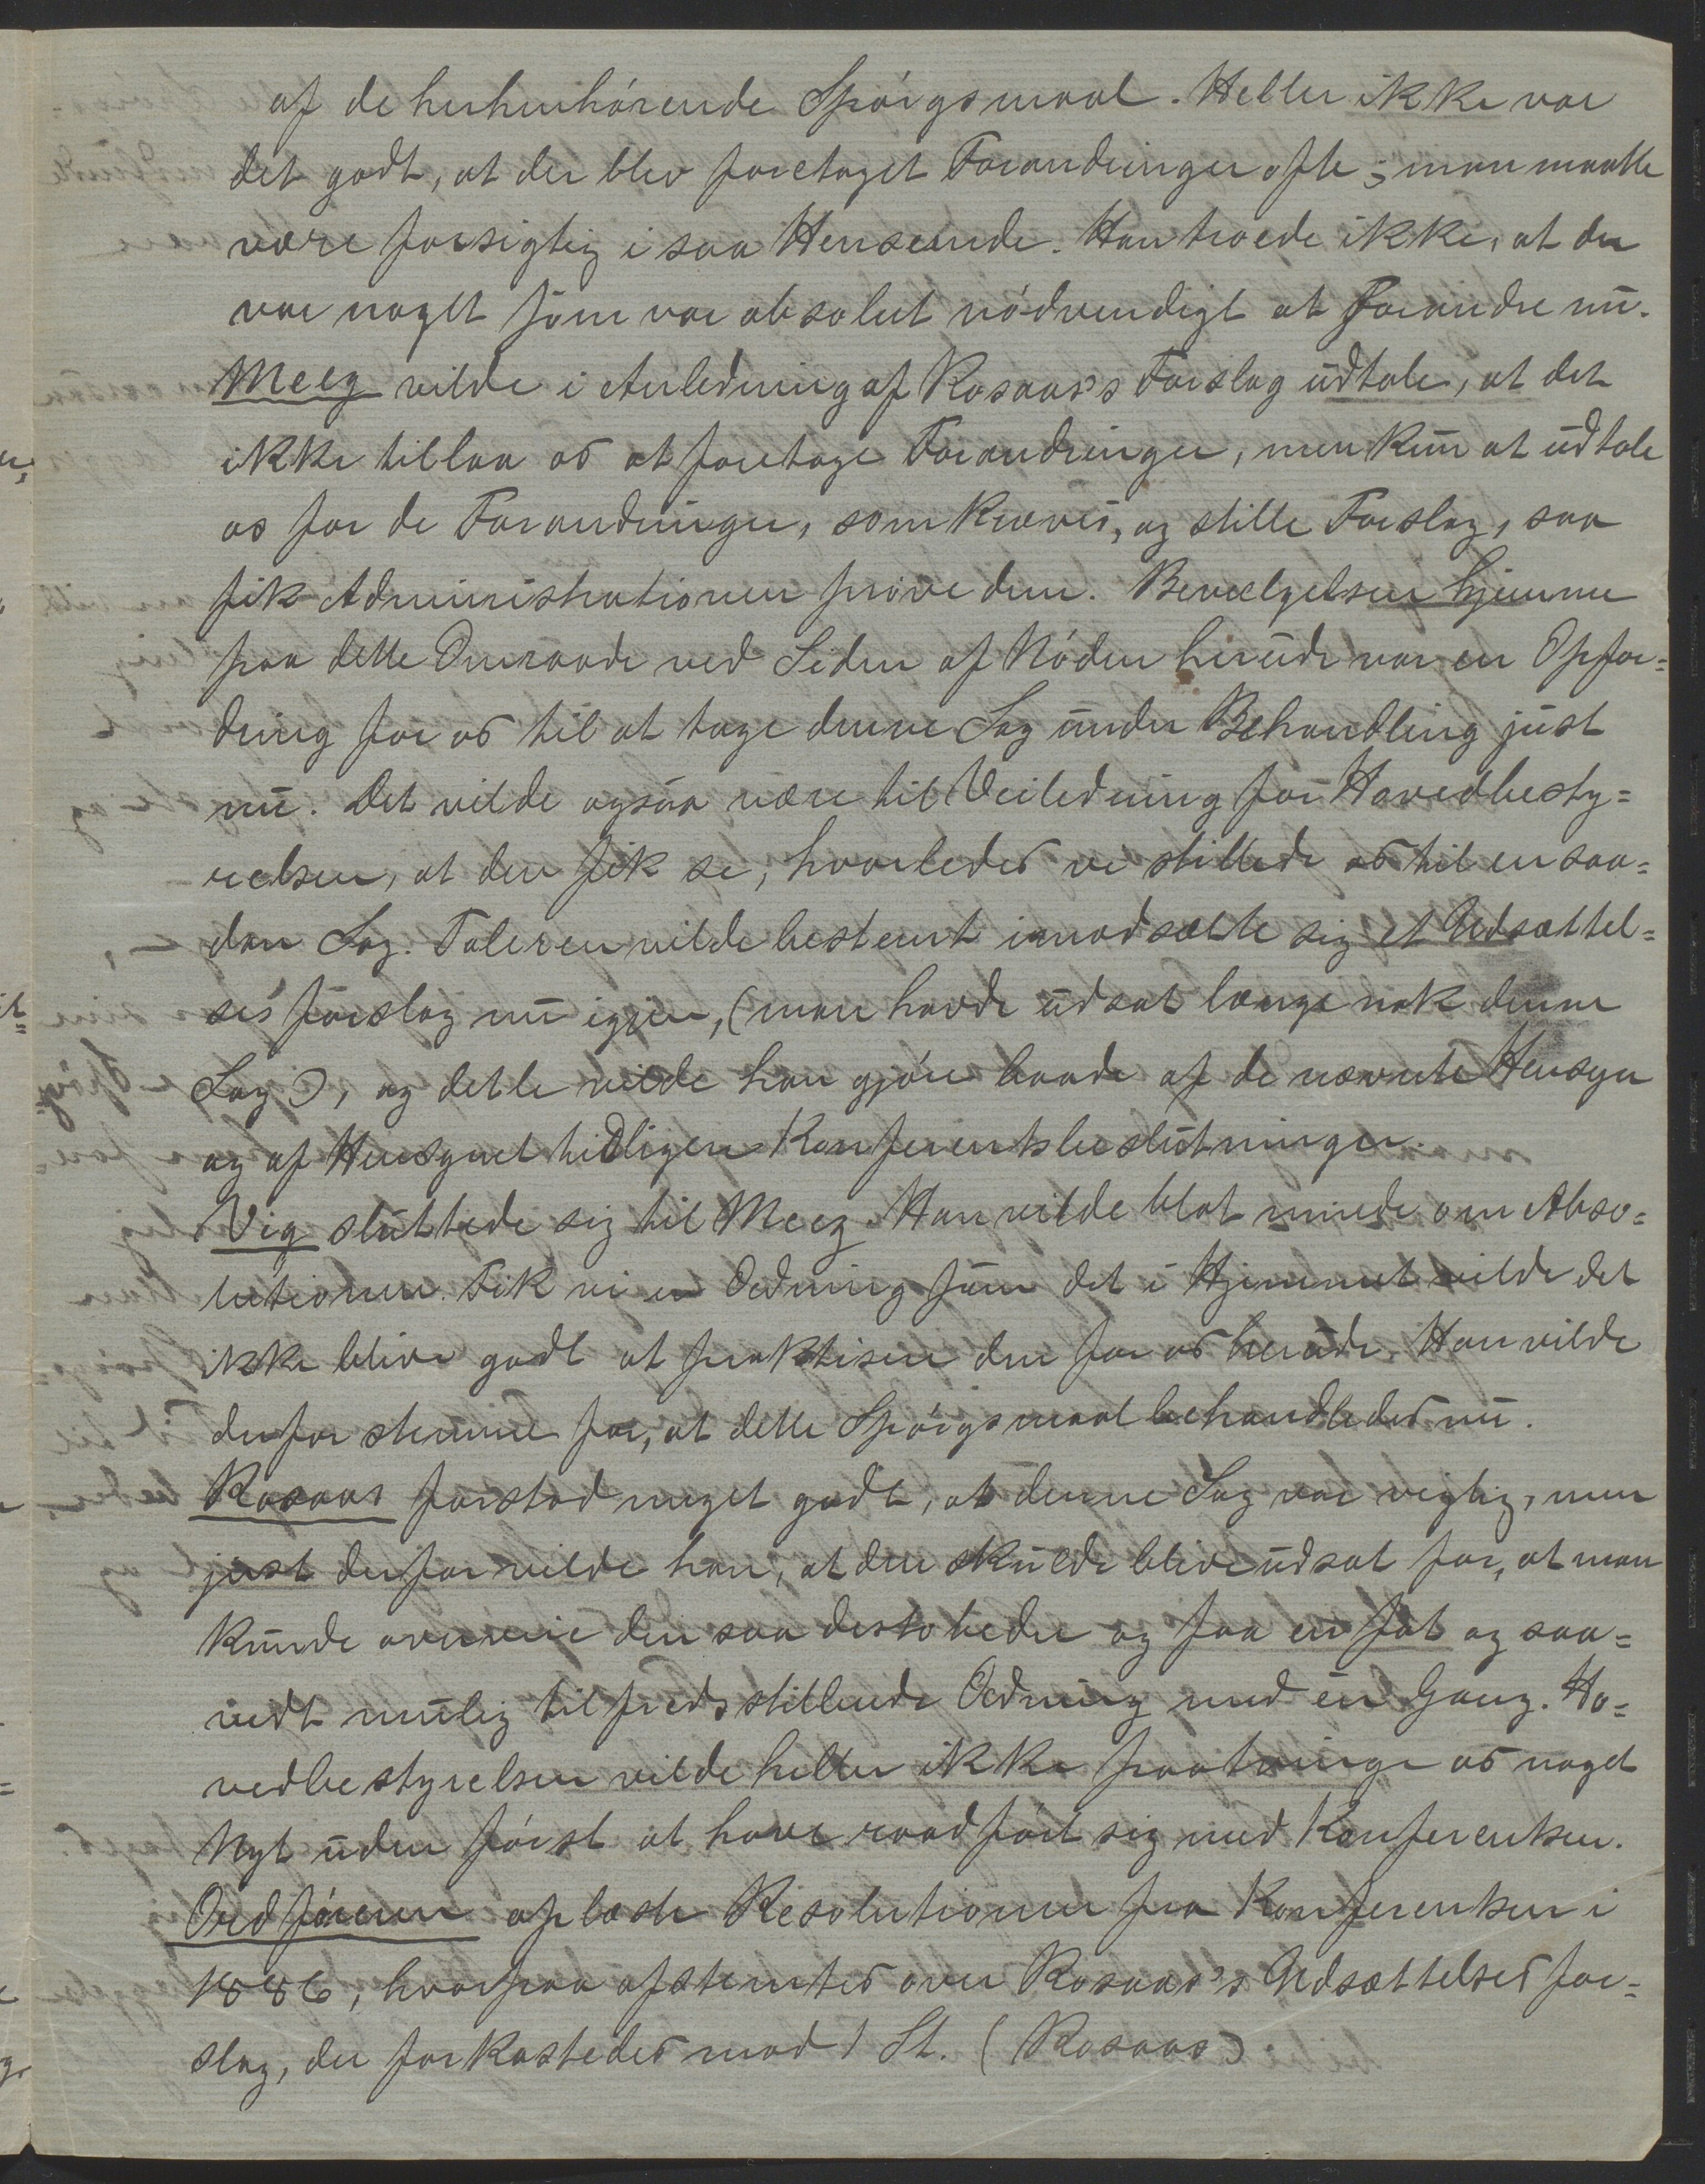 af de herhenhørende Spørgsmaal. Heller ikke var
det godt, at der blev foretaget Forandringer ofte; man maatte
være forsigtig i saa Henseende. Han troede ikke, at der
var noget som var absolut nødvendigt at forandre nu.
Meeg vilde i Anledning af Rosaas's Forslag udtale, at det
ikke tillaa os at foretage Forandringer, men kun at udtale
os for de Forandringer, som kræves, og stille Forslag, saa
fik Administrationen prøve dem. Bevægelsen hjemme
paa dette Omraade ved Siden af Nøden herude var en Opfor=
dring for os til at tage denne Sag under Behandling just
nu. Det vilde ogsaa være til Veiledning for Hovedbesty=
relsen, at den fik se, hvorledes vi stillede os til en saa=
dan Sag. Taleren vilde bestemt imodsætte sig et Udsættel=
ses forslag nu igjen, (man havde udsat længe nok denne
Sag), og dette vilde han gjøre baade af de nævnte Hensyn
og af Hensynet tidligere Konferentsbeslutninger.
Vig sluttede sig til Meeg. Han vilde blot minde om Abso=
lutionen. Fik vi en Ordning som det i Hjemmet vilde det
ikke blive godt at praktisere den for os herude. Han vilde
derfor stemme for, at dette Spørgsmaal behandledes nu.
Rosaas forstod meget godt, at denne Sag var vigtig, men
just derfor vilde han, at den skulde blive udsat for, at man
kunde overveie den saa desto bedre og faa en fast og saa=
vidt mulig tilfredsstillende Ordning med en Gang. Ho=
vedbestyrelsen vilde heller ikke paatvinge os noget
Nyt uden først at have raadført sig med Konferensen.
Ordføreren oplæste Resolutionen fra Konferensen i
1886, hvorpaa afstemtes over Rosaas's Udsættelses for=
slag, der forkastedes mod 1 St. (Rosaas)